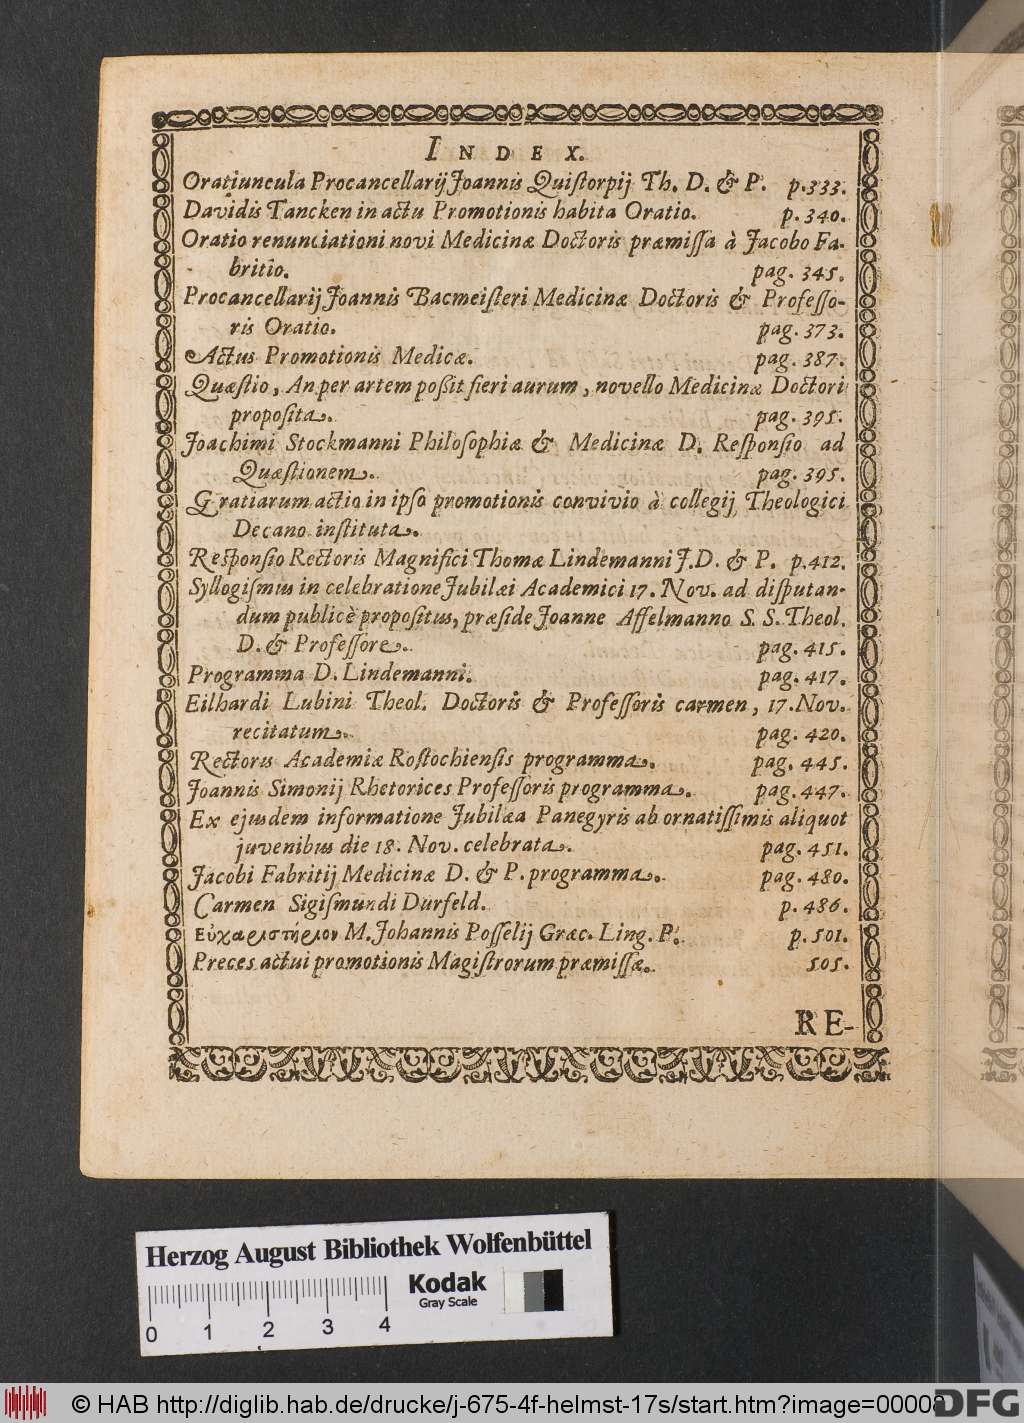 INDEX.
Oratiuncula Procancellarij Joannis Quiſtorpij Th. D. & P. p. 333.
Davidis Tancken in actu Promotionis habita Oratio. p. 340.
Oratio renunciationi novi Medicinæ Doctoris præmiſſa à Jacobo Fa-
britio. pag. 345.
Procancellarij Joannis Bacmeiſteri Medicinæ Doctoris & Profeſſo-
ris Oratio. pag. 373.
Actus Promotionis Medicæ. pag. 387.
Quæſtio, An per artem poßit fieri aurum, novello Medicinæ Doctori
propoſita. pag. 395.
Joachimi Stockmanni Philoſophiæ & Medicinæ D. Reſponſio ad
Quæſtionem. pag. 395.
Gratiarum actio in ipſo promotionis convivio à collegij Theologici
Decano inſtituta.
Reſponſio Rectoris Magnifici Thomæ Lindemanni J.D. & P. p. 412.
Syllogiſmus in celebratione Jubilæi Academici 17. Nov. ad diſputan-
dum publicè propoſitus, præſide Joanne Affelmanno S. S. Theol.
D. & Profeſſore. pag. 415.
Programma D. Lindemanni. pag. 417.
Eilhardi Lubini Theol. Doctoris & Profeſſoris carmen, 17. Nov.
recitatum. pag. 420.
Rectoris Academiæ Roſtochienſis programma. pag. 445.
Joannis Simonij Rhetorices Profeſſoris programma. pag. 447.
Ex ejusdem informatione Jubilæa Panegyris ab ornatiſſimis aliquot
juvenibus die 18. Nov. celebrata. pag. 451.
Jacobi Fabritij Medicinæ D. & P. programma. pag. 480.
Carmen Sigiſmundi Durfeld. p. 486.
Εὐχαριστήριον M. Johannis Poſſelij Græc. Ling. P. p. 501.
Preces actui promotionis Magiſtrorum præmiſſæ. 505.
RE-
Herzog August Bibliothek Wolfenbüttel
Kodak
Gray Scale
0 1 2 3 4
© HAB http://diglib.hab.de/drucke/j-675-4f-helmst-17s/start.htm?image=00008
DFG